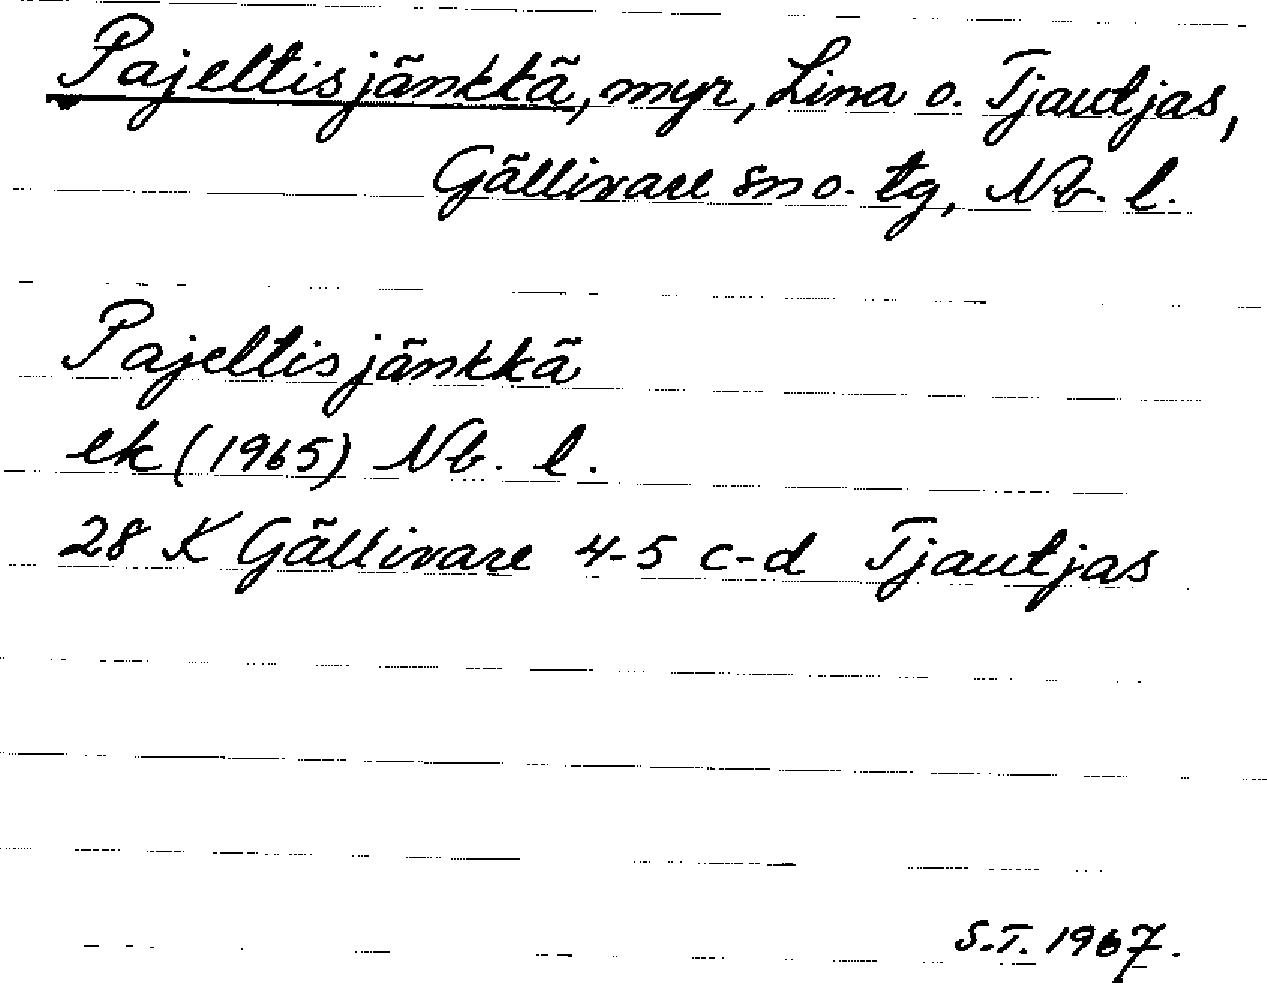 Pajeltisjänkkä, myr, Lina o. Tjautjas,
Gällivare sn o. tg, Nb. l.
Pajeltisjänkkä
ek (1965) Nb. l.
28 K Gällivare 4-5 c-d Tjautjas
S.T. 1967.